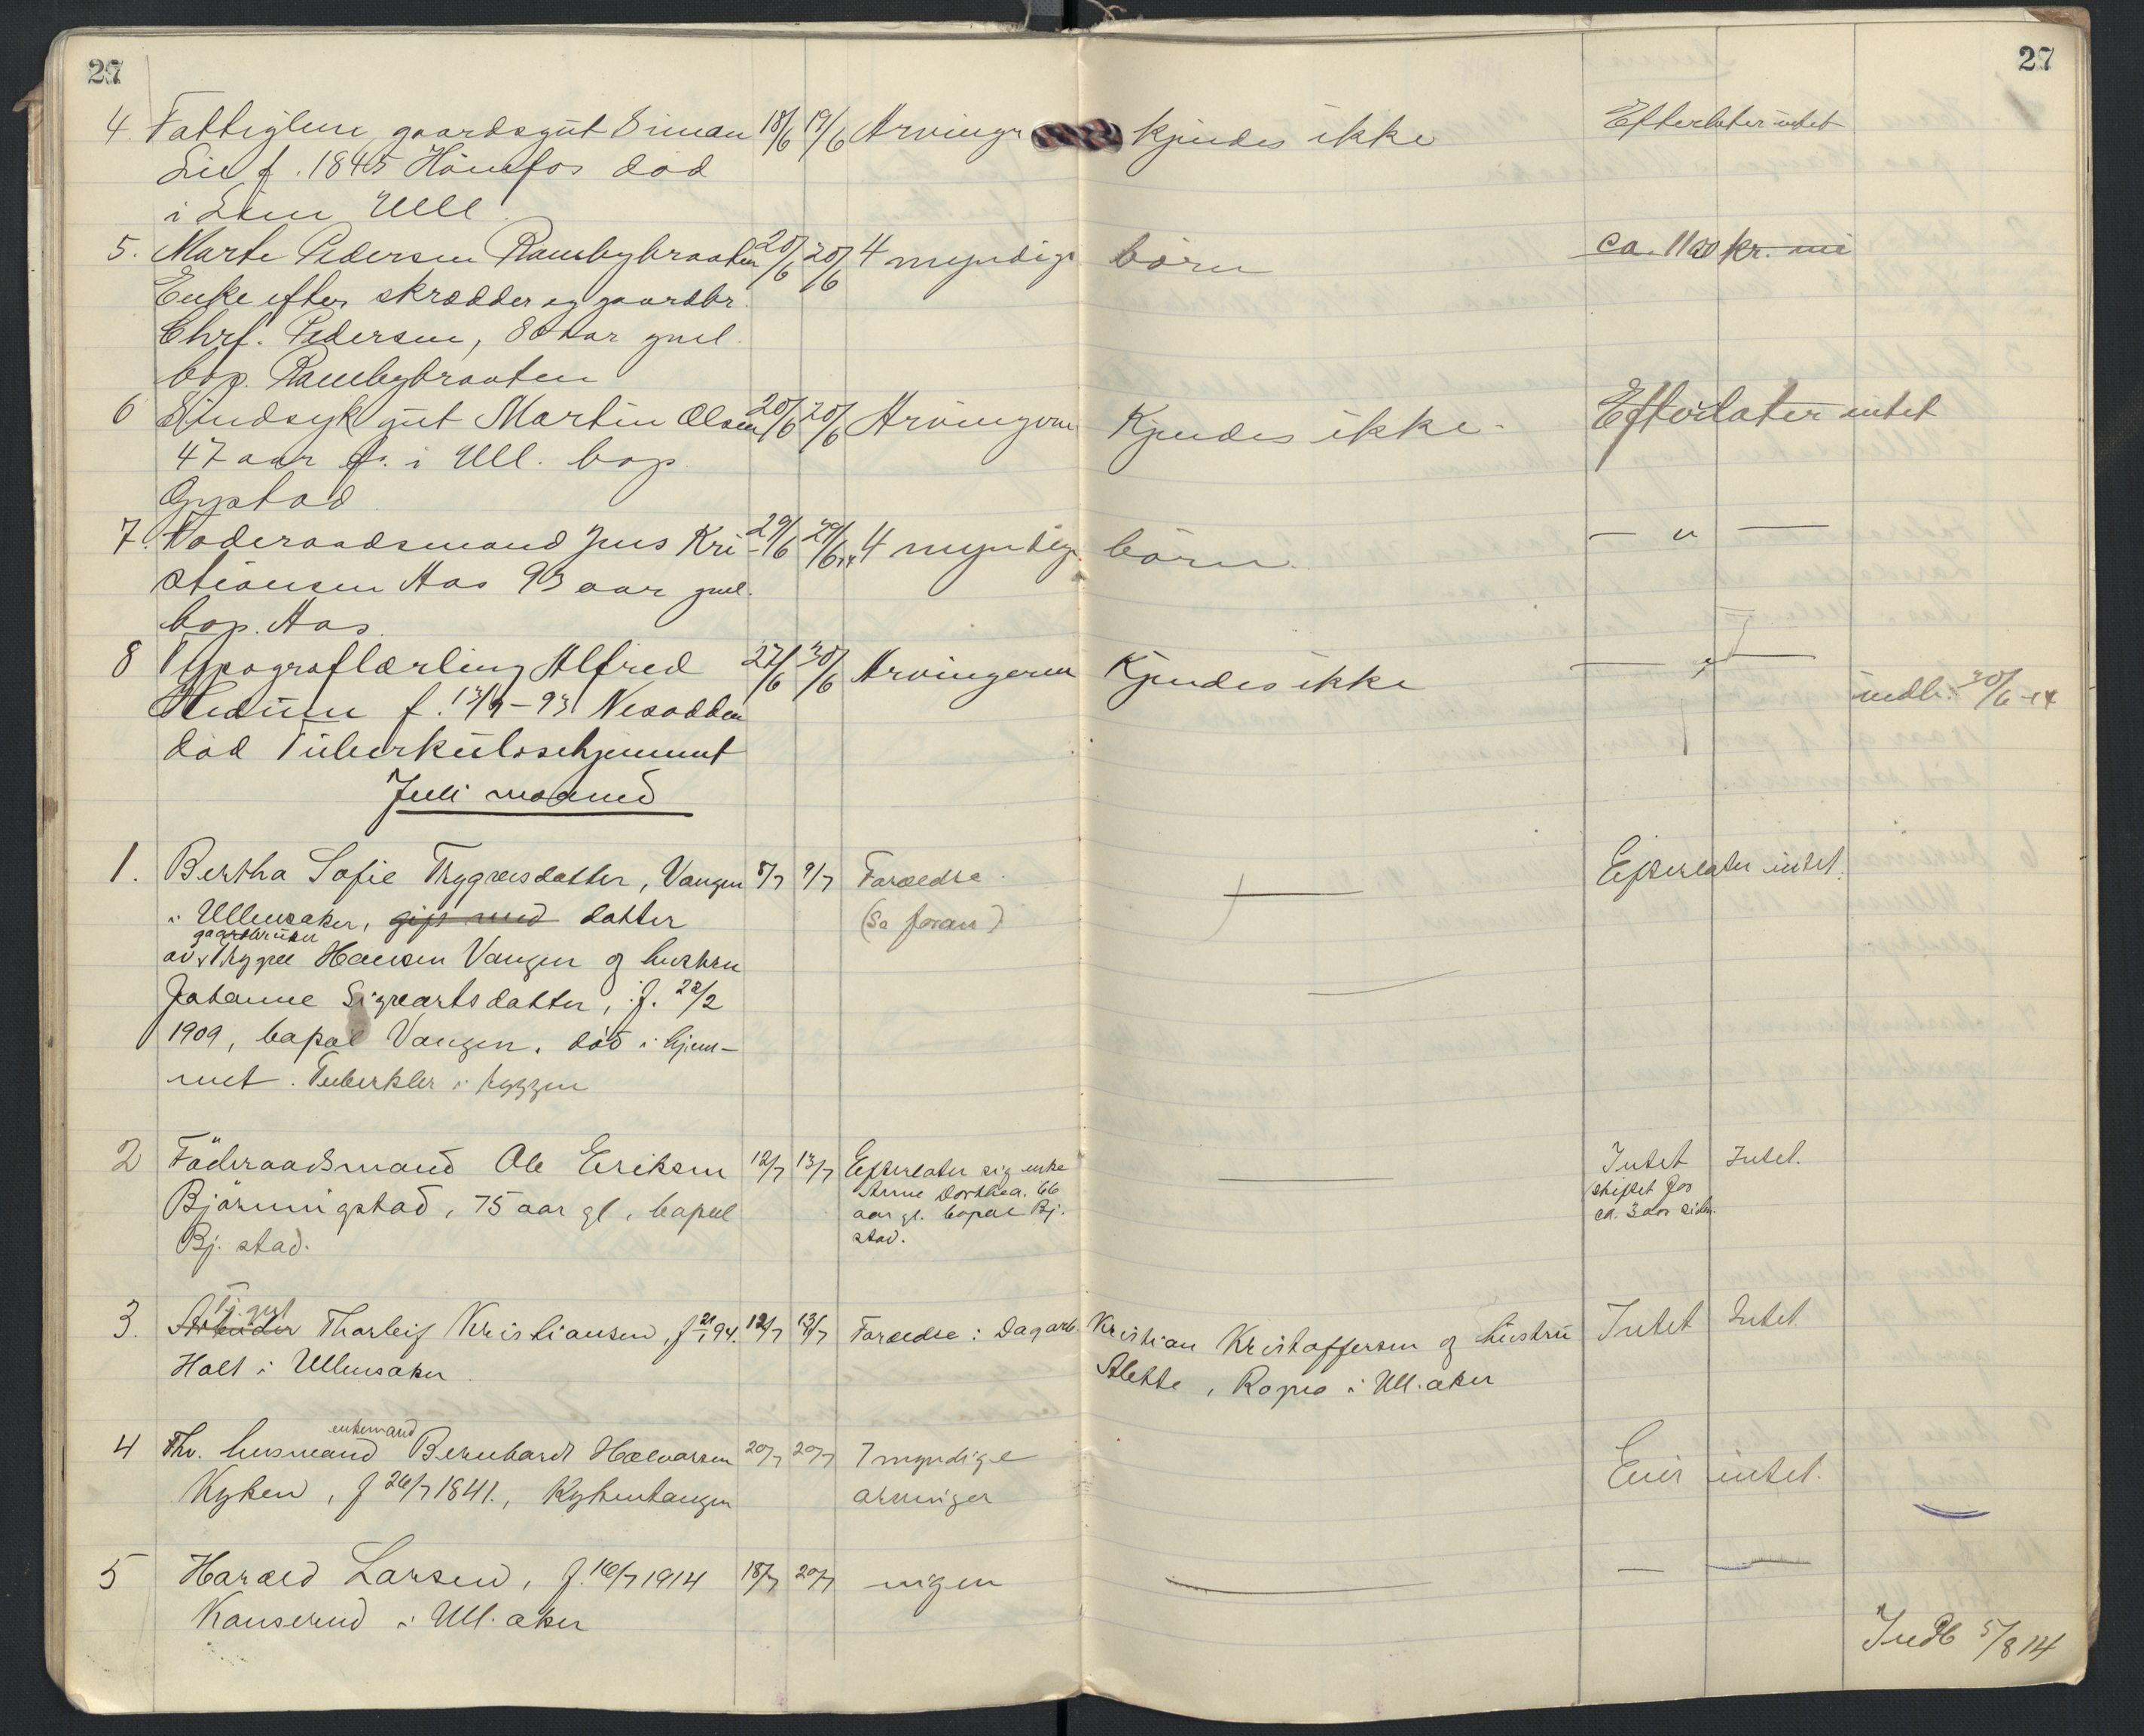 27 27
4. Fattiglem, gaardsgut Simen 18/6 19/6 Arvinger kjendes ikke Efterlater intet
Lie f. 1845 Hönefos död
i Ull
5. Marte Pedersen Rambybraaten 20/6 20/6 4 myndige börn ca. 1100 kr.
Enke efter skrædder og gaardbr.
Chr. Pedersen, 80 aar gml
bop. Rambybraaten
6 Sindsyk gut Martin Olsen 20/6 20/6 Arvingerne Kjendes ikke. Efterlater intet
47 aar f. i Ull. bop.
Gystad
7. Föderaadsmand Jens Kri- 29/6 29/6 14 4 myndige börn. — " —
stiansen Aas 93 aar gml.
bop. Aas.
8 Typograflærling Alfred 27/6 30/6 Arvingerne Kjendes ikke — " —
f. Nesodden indb. 30/6 - 14
död Tuberkulosehjemmet
Juli maaned
1. Bertha Sofie Thygvesdatter, Vangen 8/7 9/7 Forældre — Efterlater intet.
i Ullensaker, gift med datter (Se foran)
gaardbruker
av Thygve Hansen Vangen og hustru
Johanne Sigvartsdatter, f. 22/2
1909, bopæl Vangen. död i hjem-
met. Tuberkler i ryggen
2 Föderaadsmand Ole Eriksen 12/7 13/7 Efterlater sig enke — Intet Intet.
Björnmigstad, 75 aar gl, bopæl Anne Dorthea. 66 skiftet for
Bj. stad. aar gl. bopæl Bj. ca. 3 aar siden.
stad.
Tj. gut
3. Arbeider Thorleif Kristiansen, f 21/1 94. 12/7 13/7 Forældre: Dagarb. Kristian Kristoffersen og hustru Intet Intet
Holt i Ullensaker Alette, Rogno i Ull.aker
enkemand
4 Fhv. husmand Bernhardt Halvorsen 20/7 20/7 7 myndige Eier intet.
Kyken, f 26/7 1841., Kykenhaugen arvinger
5 Harald Larsen, f. 16/7 1914 18/7 20/7 ingen — — —
Kauserud i Ull.aker
Indb 5/8 14